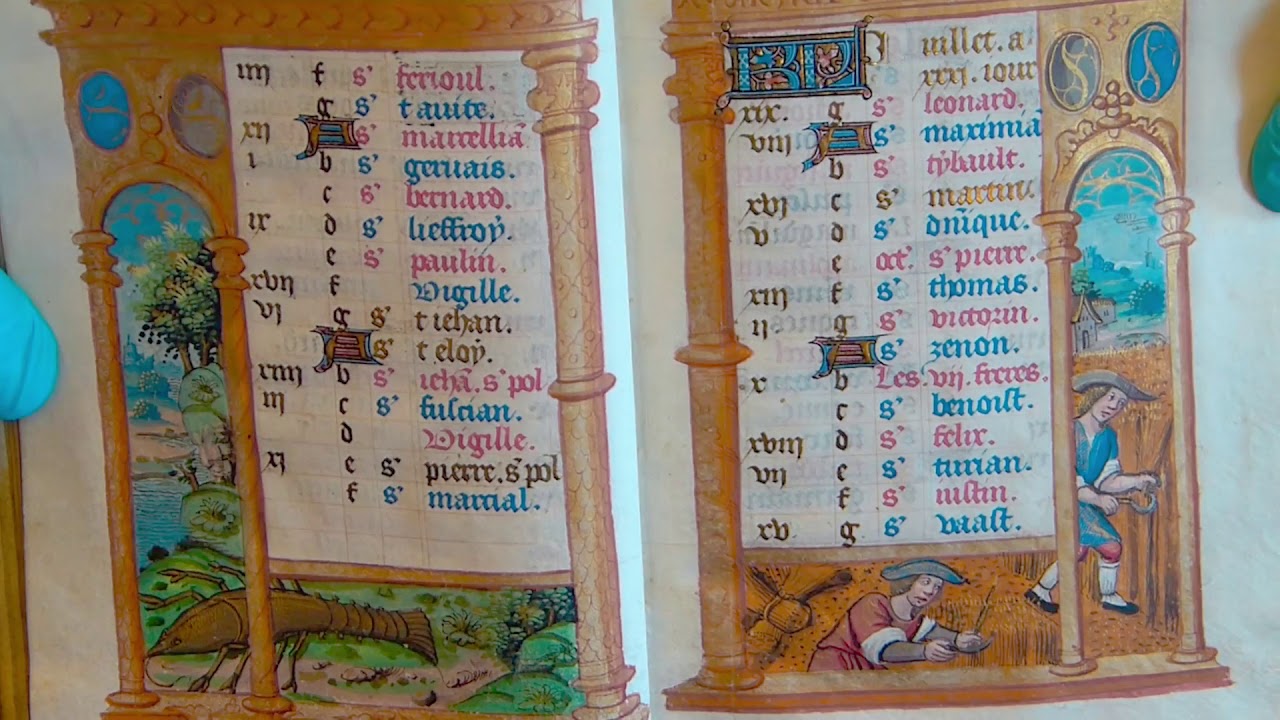 iiij f s' ferioul.
g s' t auite.
xij A s' marcelliā
i b s' geruais.
c s' bernard.
ix d s' lieffroy.
e s' paulin.
xvij f Vigille.
vj g s' t iehan.
A s' t eloy.
xiiij b s' iehā. s' pol
iij c s' fuscian.
d Vigille.
xj e s' pierre. s' pol
f s' marcial.
KL Juillet. a
xxxi. iour
xix. g s' leonard.
viij A s' maximiā
b s' tybault.
xvj c s' martin
v d s' dñique.
e oct. s' pierre.
xiij f s' thomas.
ij g s' victorin.
A s' zenon.
x b Les. vij. freres.
c s' benoist.
xviij d s' felix.
vij e s' turian.
f s' iustin.
xv. g s' vaast.